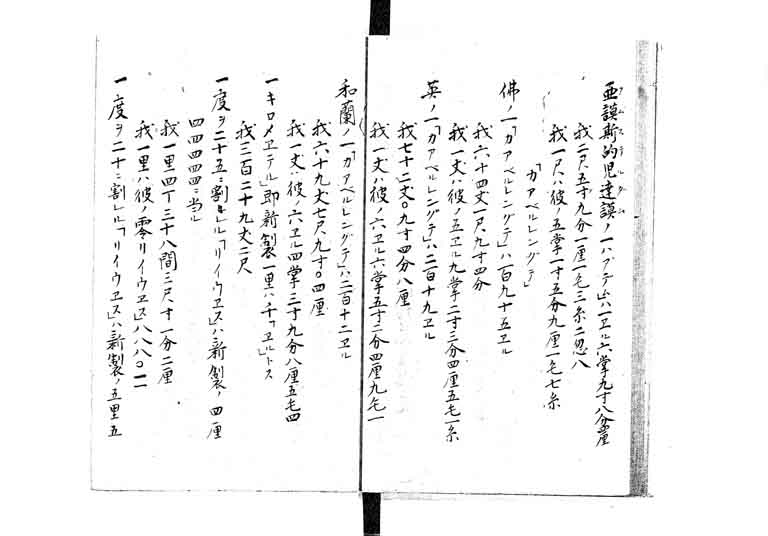 亜謨斯的児達謨ノ一ハブテムハ一ヱル六掌九寸八分釐
アムステルダム
我二尺五寸九分一厘一毛三糸二忽八
我一尺ハ彼ノ五掌一寸五分九厘一毛七糸
「カアベルレングテ」
佛ノ一「カアベルレングテ」ハ百九十五ヱル
我六十四丈一尺九寸四分
我一丈ハ彼ノ五ヱル九掌二寸三分四厘五毛一糸
英ノ一「カアベルレングテ」ハ二百十九ヱル
我七十二丈〇九寸四分八厘
我一丈ハ彼ノ六ヱル六掌五寸三分四厘九毛一
和蘭ノ一「カアベルレングテ」ハ二百十二ヱル
我六十九丈七尺九寸〇四厘
我一丈ハ彼ノ六ヱル四掌三寸九分八厘五毛四
一キロメヱテル」即新製一里ハ千「ヱル」トス
我三百二十九丈二尺
一度ヲ二十五ニ割レル「リイウヱス」ハ新製ノ四里
四四四四四ニ当ル
我一里四丁三十八間三尺寸一分二厘
我一里ハ彼ノ零リイウヱス八八八〇一一
一度ヲ二十ニ割レル「リイウヱス」ハ新製ノ五里五